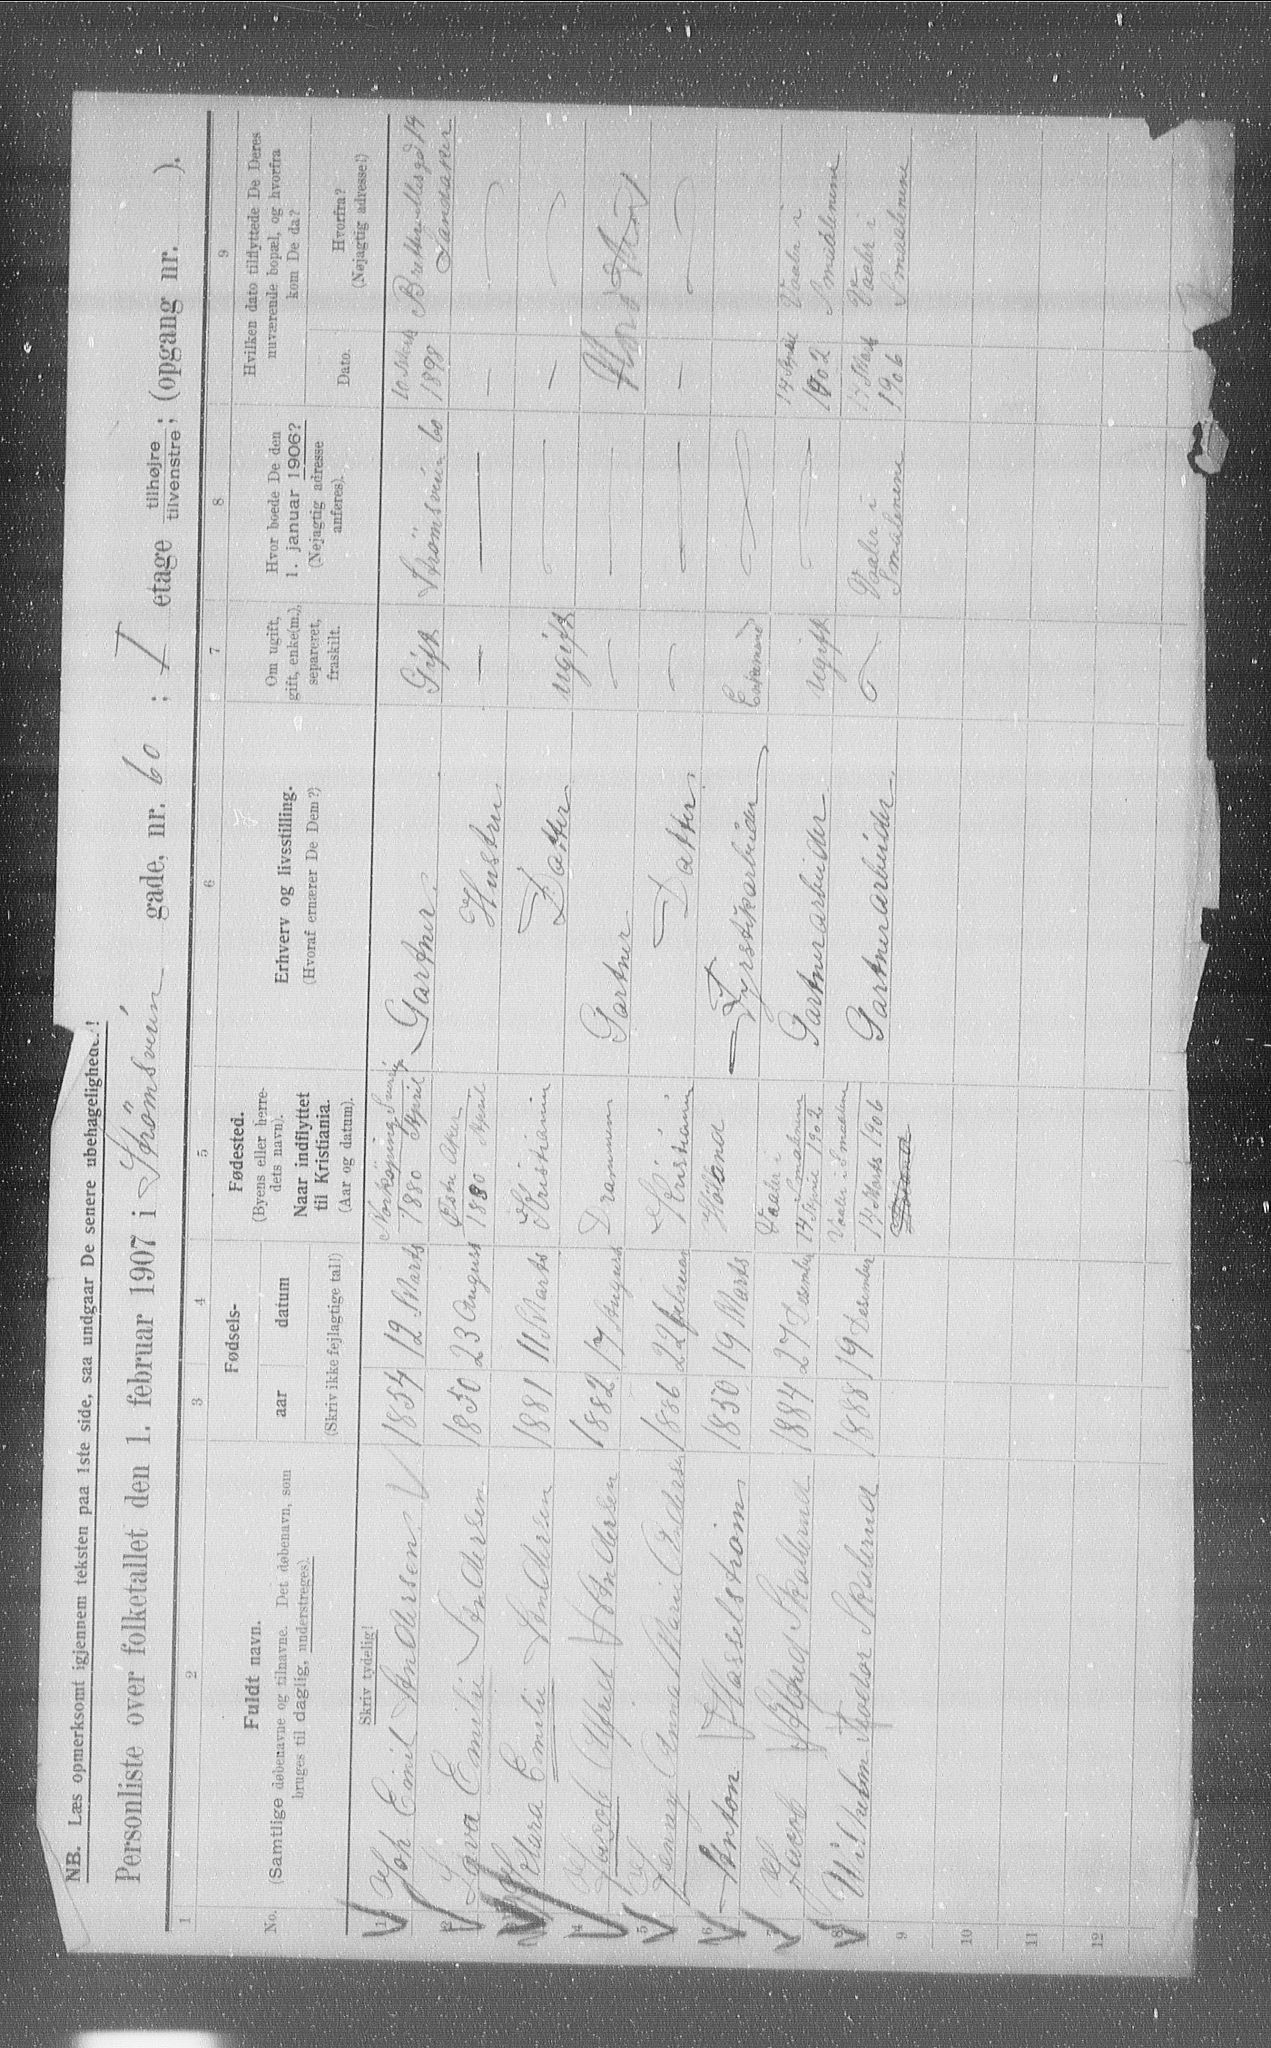 NB. Læs opmerksomt igjennem teksten paa 1ste side, saa undgaar De senere ubehageligheder!
Personliste over folketallet den 1. februar 1907 i Strömsvein gade, nr. 60 ; I etage tilhøjre tilvenstre ; (opgang nr. ).
1 2 3 4 5 6 7 8 9
No.
Fuldt navn.
(Samtlige døbenavne og tilnavne. Det døbenavn, som
bruges til daglig, understreges).
Fødsels-
aar datum
(Skriv ikke fejlagtige tal!)
Fødested.
(Byens eller herre-
dets navn).
Naar indflyttet
til Kristiania.
(Aar og datum).
Erhverv og livsstilling.
(Hvoraf ernærer De Dem?)
Om ugift,
gift, enke(m.),
separeret,
fraskilt.
Hvor boede De den
1. januar 1906?
(Nøjagtig adresse
anføres).
Hvilken dato tilflyttede De Deres
nuværende bopæl, og hvorfra
kom De da?
Dato.
Hvorfra?
(Nøjagtig adresse!)
Skriv tydelig!
1 Joh Emil Andersen 1854 12 Marts Norköping 1880 April Gartner Gift Strömsvein 60 1898
2 Emilie Andersen 1850 23 August Aker 1880 April Hustru —
3 Klara Emilie Andersen 1881 11 Marts Kristiania Datter ugift —
4 Jacob Alfred Andersen 1882 17 August Drammen Gartner —
5 Jenny Anna Marie Andersen 1886 22 februar Kristiania Datter —
6 Anton Hasselstrøm 1850 19 Marts Høland Fyrstikarbeider Enkemand
7 Jacob Alfred Skallerud 1884 27 Desember Vaaler i Smalenene 14 April 1902 Gartnerarbeider Ugift — 14 April 1902 Vaaler i Smaalenene
8 Wilhelm Skallerud 1888 19 Desember Vaaler i Smalen 17 Marts 1906 Gartnerarbeider — Vaaler i Smalenene 17 Marts 1906 Vaaler i Smaalenene
9
10
11
12